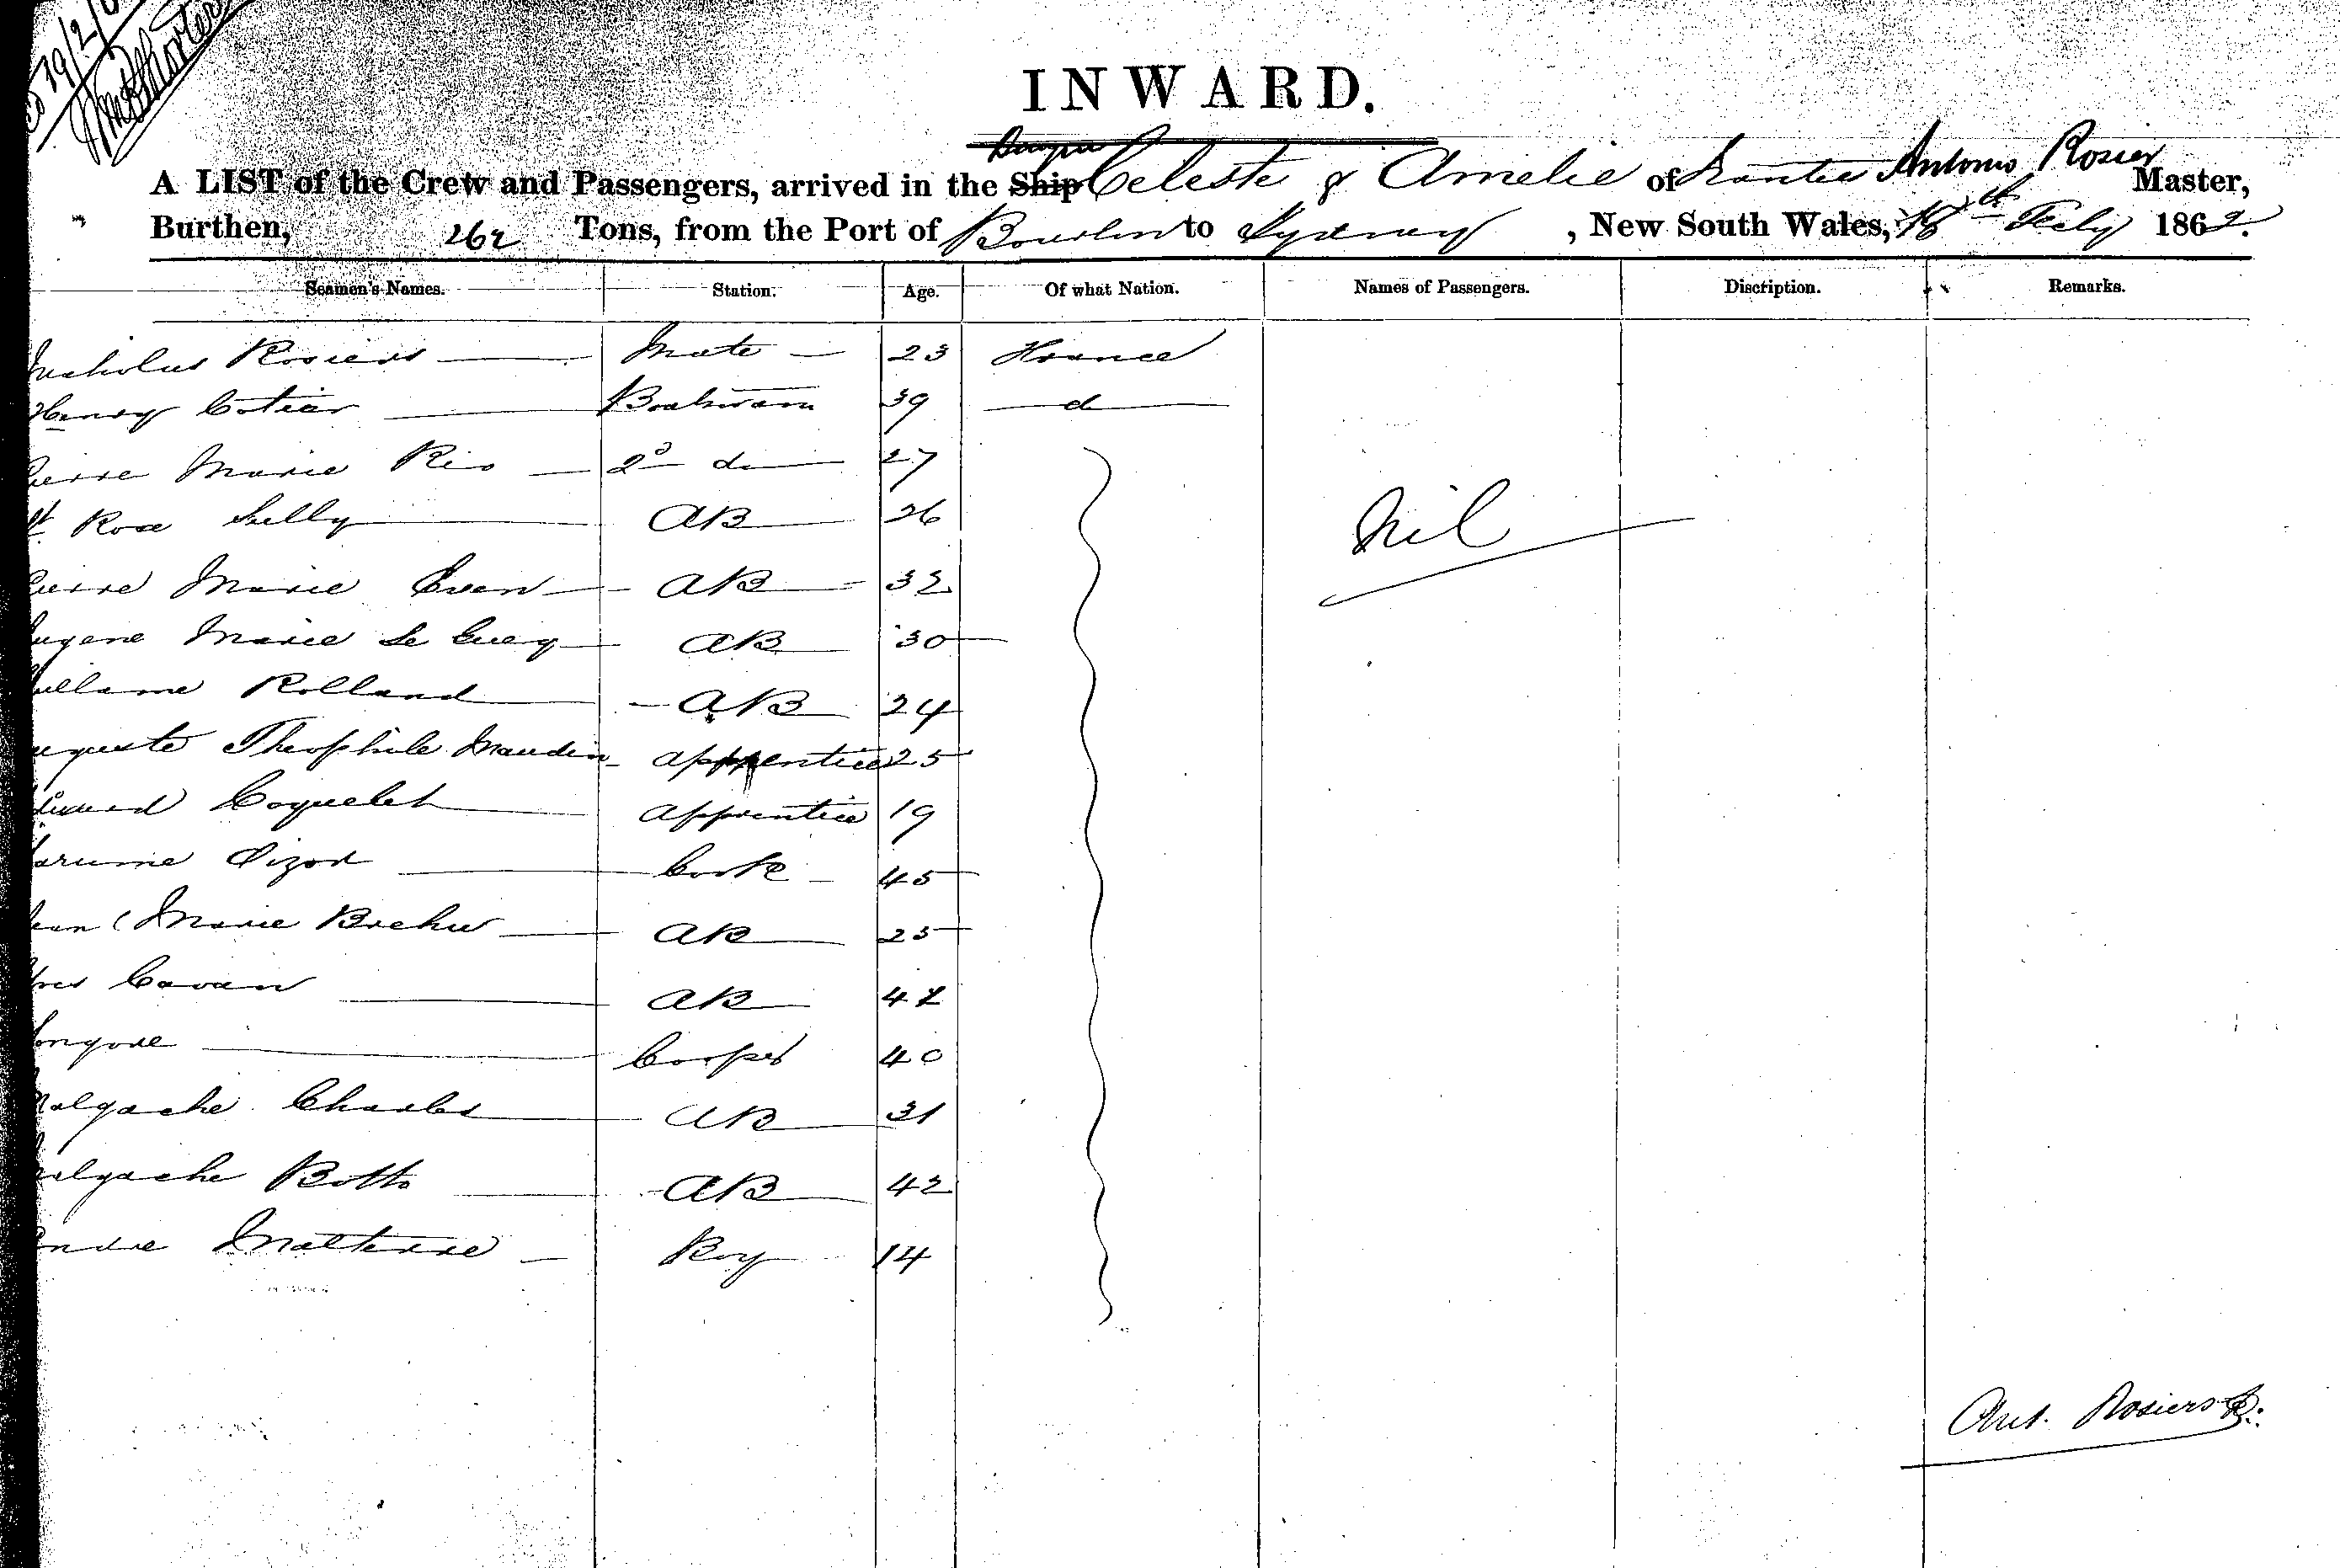 19/2/6
INWARD.
A LIST of the Crew and Passengers, arrived in the Ship Celeste & Amelie of Nantes Antonio Rosier Master,
Burthen, 262 Tons, from the Port of Bourbon to Sydney, New South Wales, 18th Feby 1862.
Seamen's Names. Station. Age. Of what Nation. Names of Passengers. Discription. Remarks.
Nicholus Rosiers Mate 23 France
Henry Cotier Boatswain 39 d
Pierre Marie Rio 2d do 27
St Rose Lelly AB 26
Nil
Pierre Marie Even AB 32
Eugene Marie Le Guey AB 30
uillame Rolland AB 24
uguste Theophile Maudin apprentice 25
Edward Coquelet apprentice 19
arume Cizon Cook 45
Jean Marie Brehu AB 25
Yves Cavan AB 42
ongose Cooper 40
Malgache Charles AB 31
Malgache Botto AB 42
Andre Malterre Boy 14
Ant. Rosiers